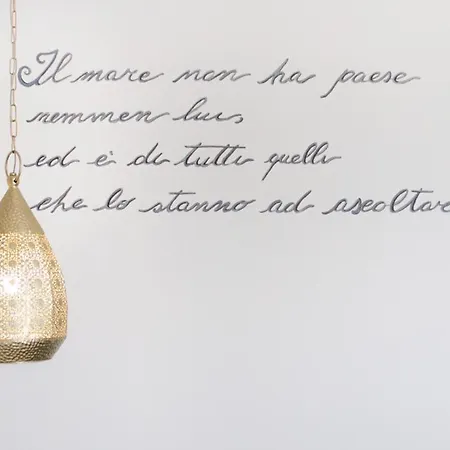 Il mare non ha paese
nemmen lui,
ed è di tutti quelli
che lo stanno ad ascoltare